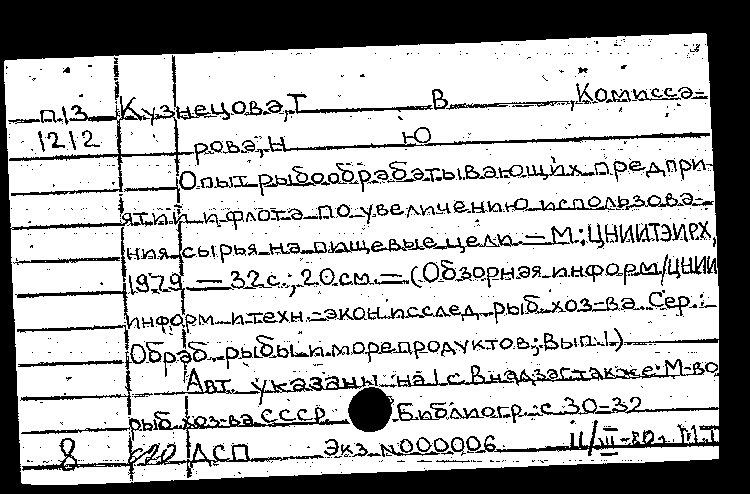 П13 Кузнецова, Т В , Комисса-
1212 рова, Н Ю
Опыт рыбообрабатывающих предпри-
ятий и флота по увеличению использова-
ния сырья на пищевые цели. — М.; ЦНИИТЭИРХ,
1979 — 32 с.; 20 см. — (Обзорная информ/ЦНИИ
информ и техн.-экон исслед. рыб. хоз-ва Сер.:
Обраб. рыбы и морепродуктов; Вып. 1)
Авт. указаны на 1 с В надзаг. также: М-во
рыб хоз-ва СССР. Библиогр.: с 30-32
8 ДСП Экз N000006 11/III-80г. М.Т